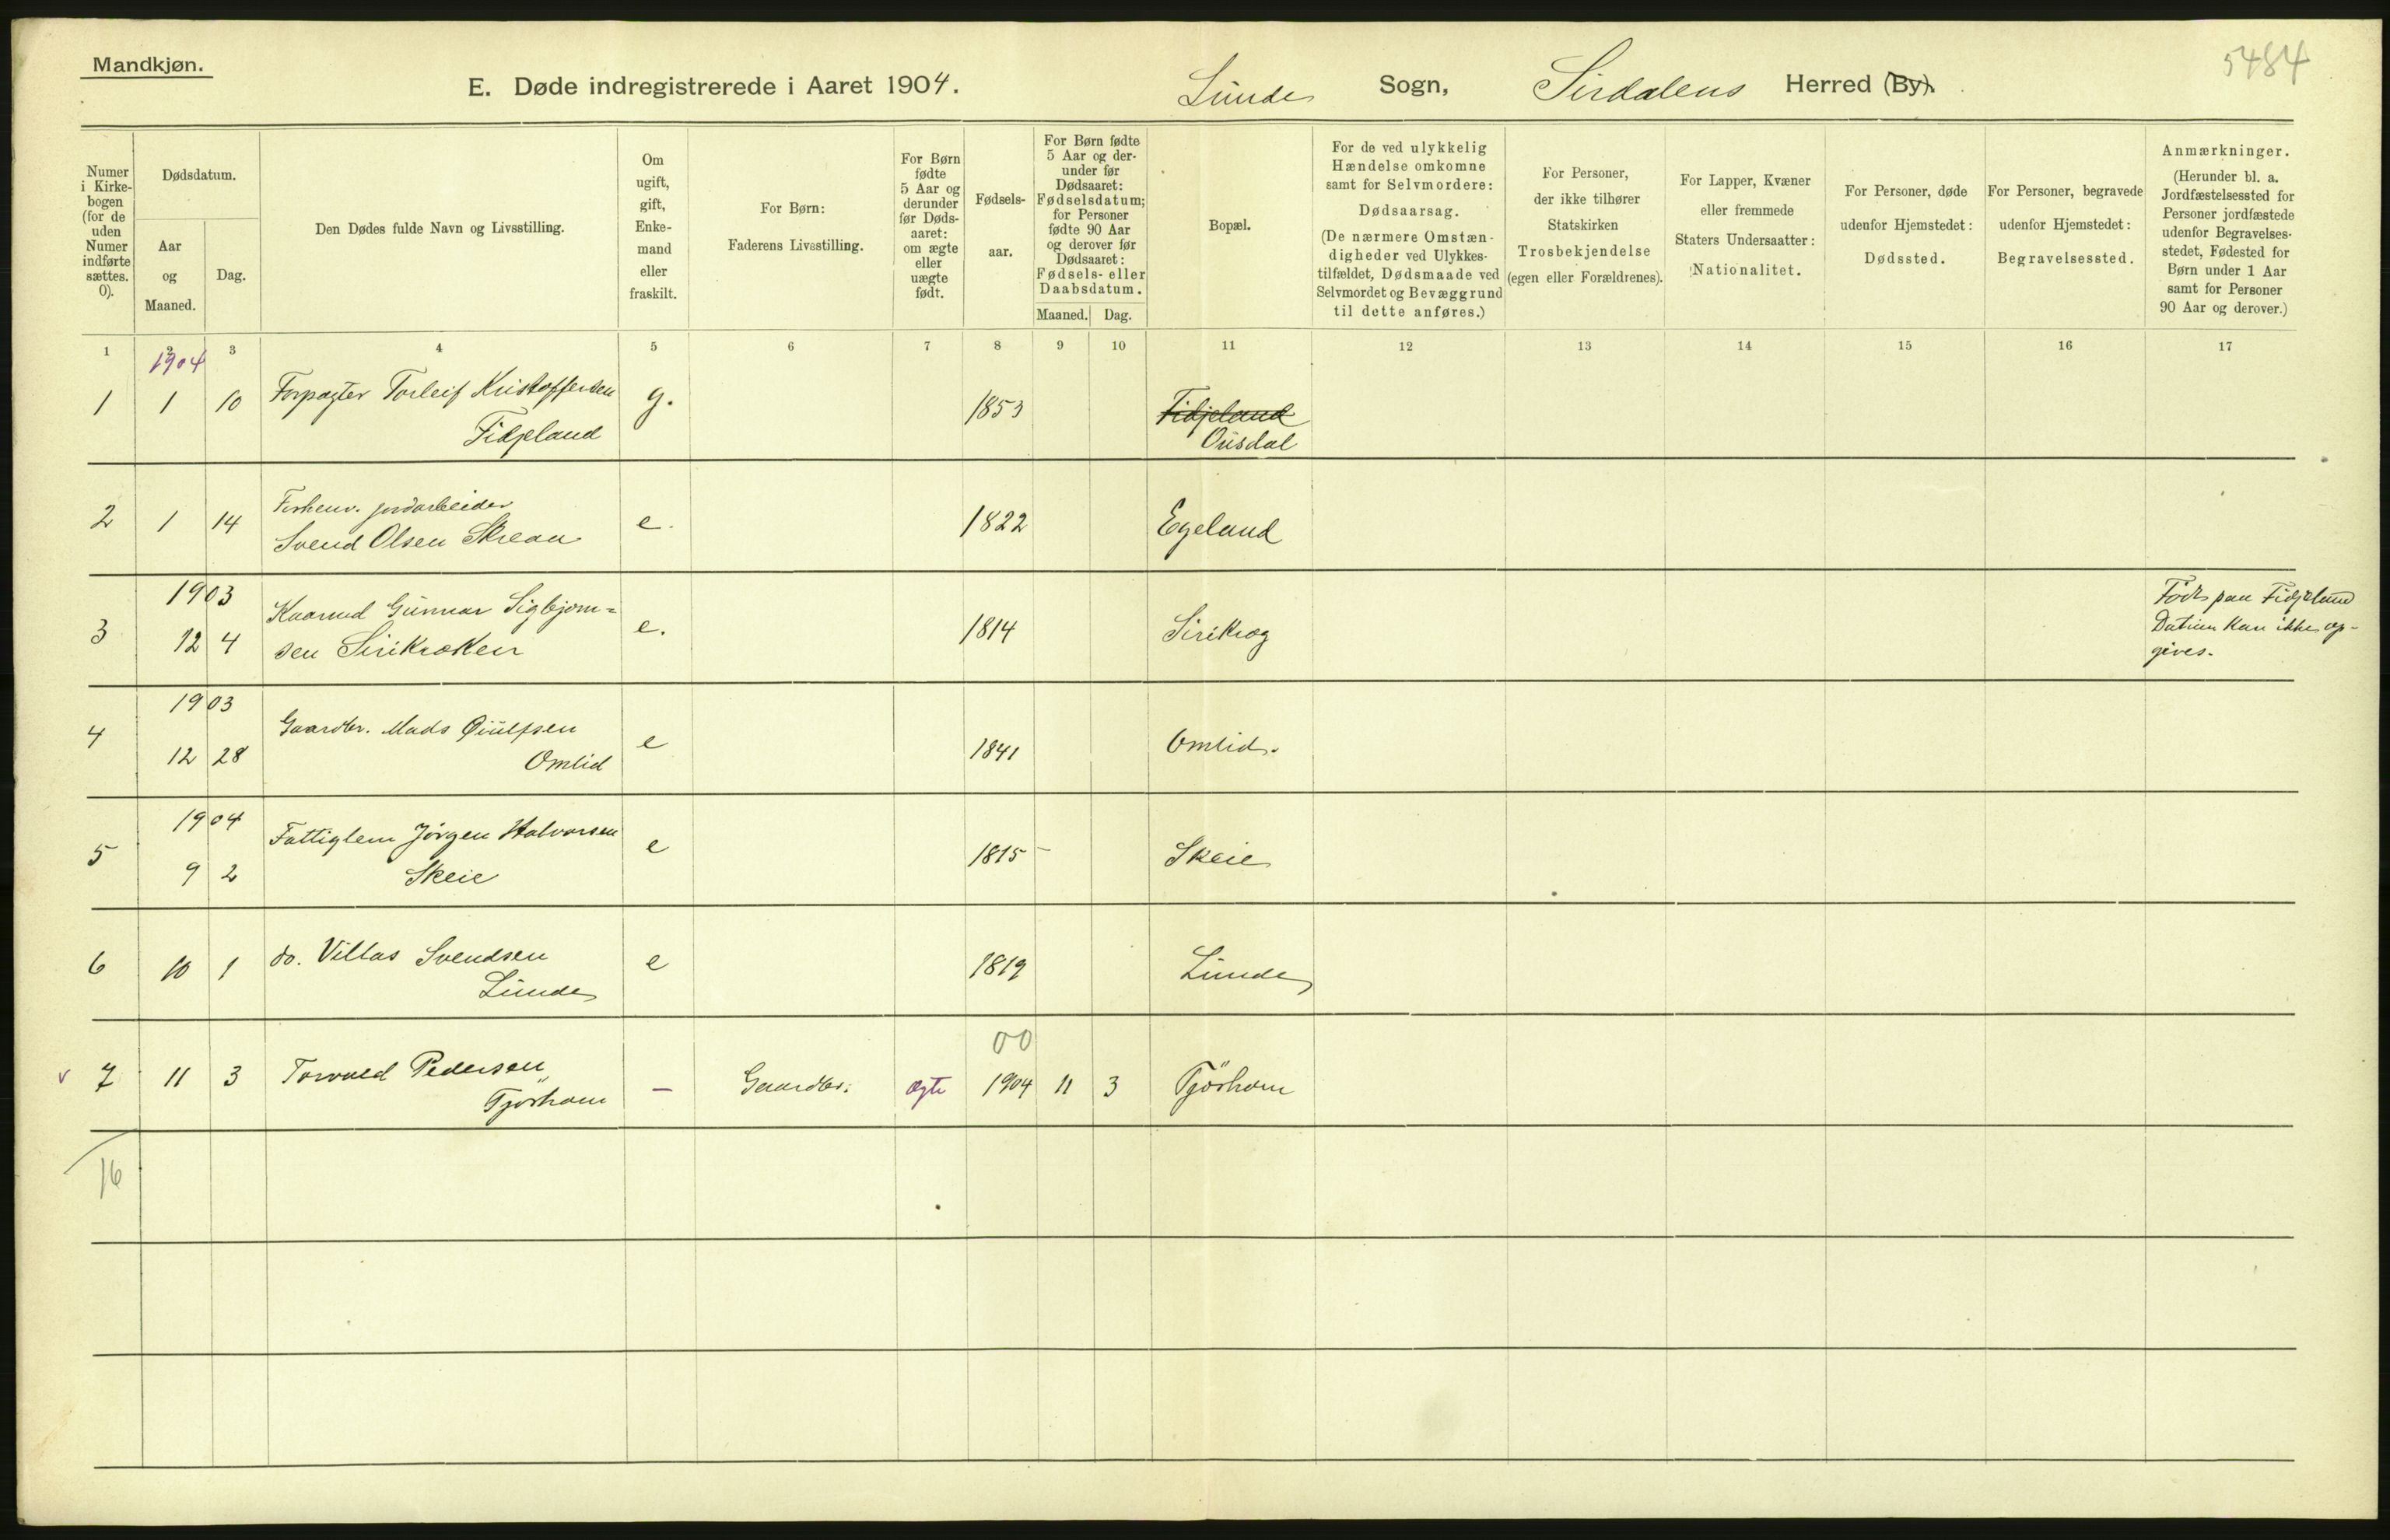 Mandkjøn.
E. Døde indregistrerede i Aaret 1904.
Lunde Sogn, Sirdalens Herred (By).
5484
Numer i Kirkebogen (for de uden Numer indførte sættes. 0).
Dødsdatum.
Aar og Maaned.
Dag.
Den Dødes fulde Navn og Livsstilling.
Om ugift, gift, Enkemand eller fraskilt.
For Børn: Faderens Livsstilling.
For Børn fødte 5 Aar og derunder før Dødsaaret: om ægte eller uægte født.
Fødselsaar.
For Børn fødte 5 Aar og derunder før Dødsaaret: Fødselsdatum; for Personer fødte 90 Aar og derover før Dødsaaret: Fødsels- eller Daabsdatum.
Maaned. Dag.
Bopæl.
For de ved ulykkelig Hændelse omkomne samt for Selvmordere: Dødsaarsag. (De nærmere Omstændigheder ved Ulykkestilfældet, Dødsmaade ved Selvmordet og Bevæggrund til dette anføres.)
For Personer, der ikke tilhører Statskirken Trosbekjendelse (egen eller Forældrenes).
For Lapper, Kvæner eller fremmede Staters Undersaatter: Nationalitet.
For Personer, døde udenfor Hjemstedet: Dødssted.
For Personer, begravede udenfor Hjemstedet: Begravelsessted.
Anmærkninger. (Herunder bl. a. Jordfæstelsessted for Personer jordfæstede udenfor Begravelsesstedet, Fødested for Børn under 1 Aar samt for Personer 90 Aar og derover.)
1 2 3 4 5 6 7 8 9 10 11 12 13 14 15 16 17
1904
1 1 10 Forpagter Torleif Kristoffersen g. 1853 Fidjeland
Fidjeland Ousdal
2 1 14 Forhenv. jordarbeider
Svend Olsen Skrean e. 1822 Egeland
1903
3 12 4 Kaarmd Gunnar Sigbjørn=
sen Sirikroken e. 1814 Sirikrog
Født paa Fidjeland
Datum kan ikke op-
gives.
1903
4 12 28 Gaardbr. Mads Omlid e 1841 Omlid.
1904
5 9 2 Fattiglem Jörgen Halvorsen
Skeie e 1815 Skeie
6 10 1 do. Villas Svendsen
Lunde e 1819 Lunde
00
v 7 11 3 Torvald Pedersen
Tjörhom — Gaardbr. ægte 1904 11 3 Tjörhom
16